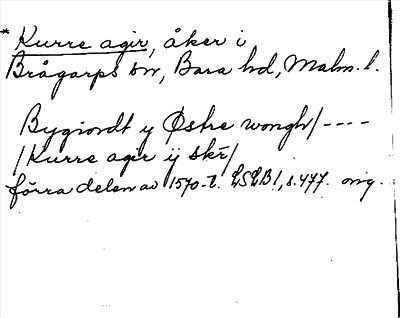 * Kurre agir, åker i
Brågarps sn, Bara hd, Malm. l.
Bygiordt y Østre wongh/----
/Kurre agir ÿ skr̄/
förra delen av 1570-t. LSLB1, s. 477. orig.